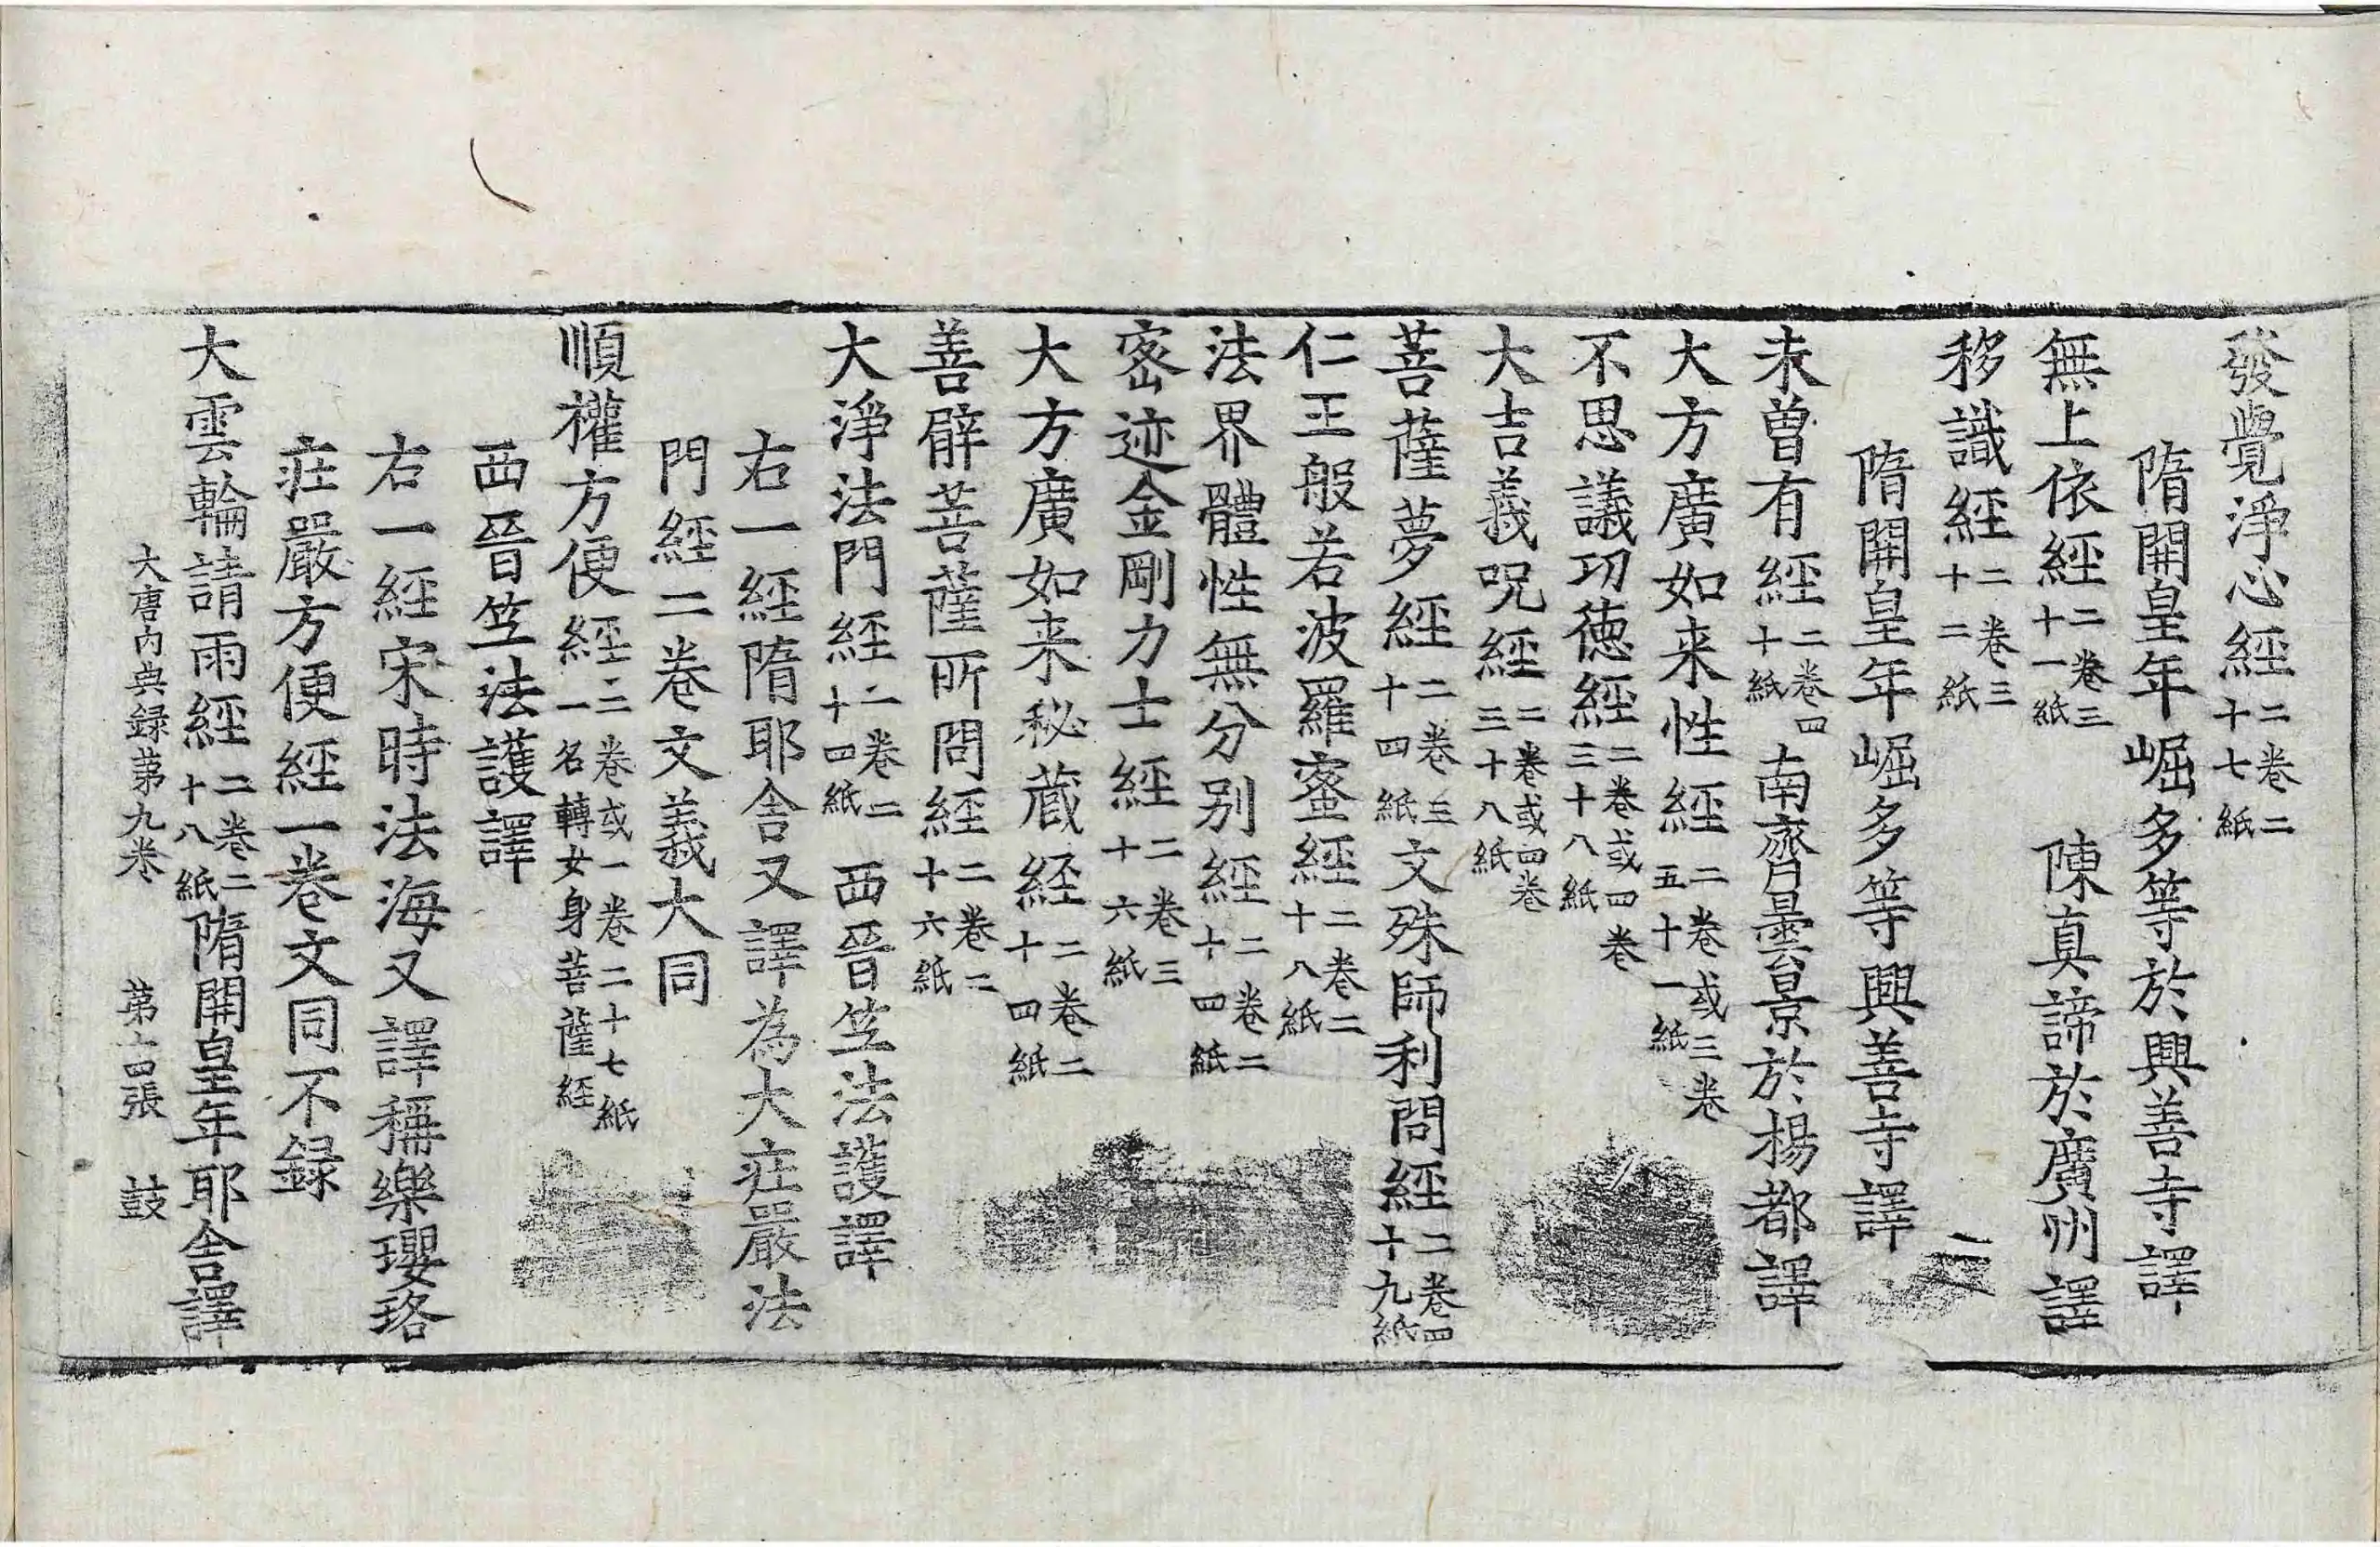 發覺淨心經二卷二十七紙
隋開皇年崛多等於興善寺譯
無上依經二卷三十一紙　陳真諦於廣州譯
移識經二卷三十二紙
隋開皇年崛多等興善寺譯
未曾有經二卷四十紙　南齊曇景於楊都譯
大方廣如来性經二卷或三卷五十一紙
不思議功德經二卷或四卷三十八紙
大吉義呪經二卷或四卷三十八紙
菩薩夢經二卷三十四紙　文殊師利問經二卷四十九紙
仁王般若波羅蜜經二卷二十八紙
法界體性無分别經二卷二十四紙
密迹金剛力士經二卷三十六紙
大方廣如来秘蔵経二卷二十四紙
善臂菩薩所問經二卷二十六紙
大淨法門經一卷二十四紙　西晉笁法護譯
右一經隋耶舍又譯為大莊嚴法
門經二卷文義大同
順權方便經二卷或一卷二十七紙一名轉女身菩薩経
西晉笁法護譯
右一經宋時法海又譯稱樂瓔珞
莊嚴方便經一卷文同不録
大雲輪請雨經二卷二十八紙　隋開皇年耶舍譯
大唐內典録苐九卷　苐十四張　鼓